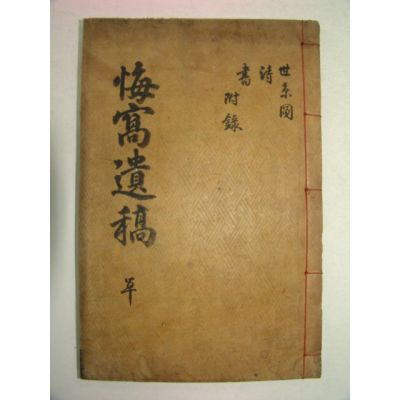 世系圖
詩
書 附錄
悔窩遺稿